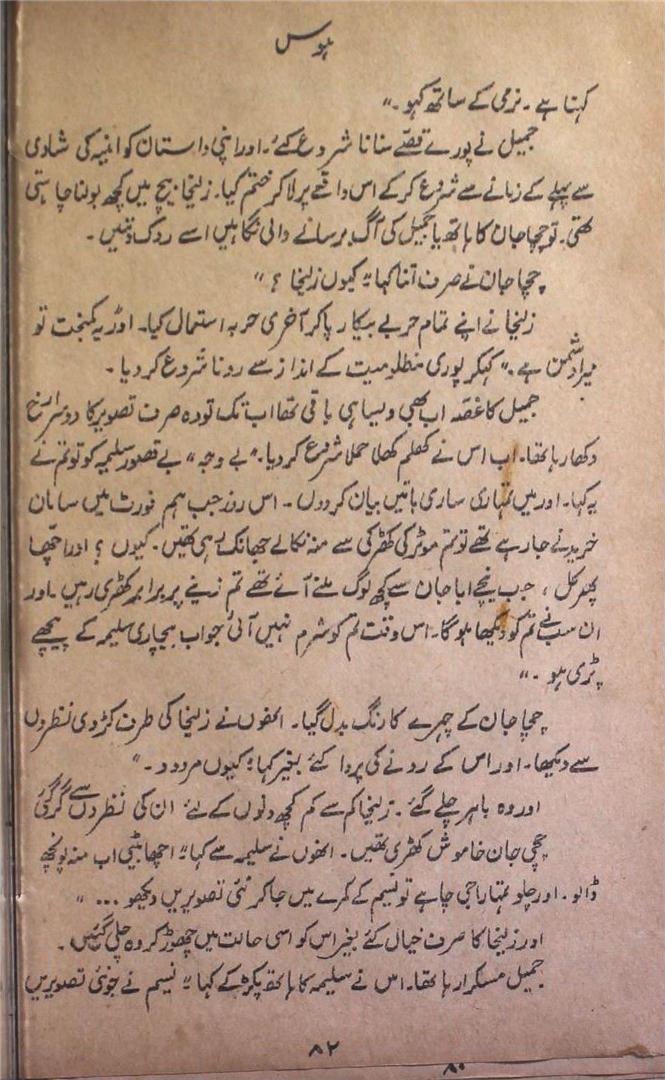 ہوس
کہنا ہے۔ نرمی کے ساتھ کہو۔“
جمیل نے پورے قصّے سنانا شروع کئے۔ اور اپنی داستان کو انیہ کی شادی
سے پہلے کے زمانے سے شروع کرکے اس واقعے پر لاکر ختم کیا۔ زلیخا بیچ میں کچھ بولنا چاہتی
تھی۔ تو چچا جان کا ہاتھ یا جمیل کی آگ برسانے والی نگاہیں اسے روک دیتیں۔
چچا جان نے صرف اتنا کہا ”کیوں زلیخا ؟“
زلیخا نے اپنے تمام حربے بیکار پاکر آخری حربہ استمال کیا۔ اور ”یہ کمبخت تو
میرا دشمن ہے“ کہکر پوری مظلومیت کے انداز سے رونا شروع کر دیا۔
جمیل کا غصّہ اب بھی ویسا ہی باقی تھا اب تک تو وہ صرف تصویر کا دوسرا رخ
دکھا رہا تھا۔ اب اس نے کھلم کھلا حملا شروع کر دیا۔ ”بے وجہ“ بے قصور سلیمہ کو تو تم نے
یہ کہا۔ اور میں تمہاری ساری باتیں بیان کردوں۔ اس روز جب ہم فورٹ میں سامان
خریدنے جا رہے تھے تو تم موٹر کی کھڑکی سے منہ نکالے جھانک رہی تھیں۔ کیوں ؟ اور اچھا
پھر کل ، جب نیچے ابا جان سے کچھ لوگ ملنے آئے تھے تم زینے پر برابر کھڑی رہیں۔ اور
ان سب نے تم کو دیکھا ہوگا۔ اس وقت تم کو شرم نہیں آئی جو اب بیچاری سلیمہ کے پیچھے
پڑی ہو۔“
چچا جان کے چہرے کا رنگ بدل گیا۔ انھوں نے زلیخا کی طرف کڑوی نظروں
سے دیکھا۔ اور اس کے رونے کی پروا کئے بغیر کہا ”کیوں مردود۔“
اور وہ باہر چلے گئے۔ زلیخا کم سے کم کچھ دنوں کے لئے ان کی نظروں سے گرگئی
چچی جان خاموش کھڑی تھیں۔ انھوں نے سلیمہ سے کہا ”اچھا بیٹی اب منہ پونچھ
ڈالو۔ اور چلو تمہارا جی چاہے تو نسیم کے کمرے میں جاکر نئی تصویریں دیکھو ...“
اور زلیخا کا صرف خیال کئے بغیر اس کو اسی حالت میں چھوڑ کر وہ چلی گئیں۔
جمیل مسکرا رہا تھا۔ اس نے سلیمہ کا ہاتھ پکڑ کے کہا ”نسیم نے جو نئی تصویریں
۸۲
۸۰